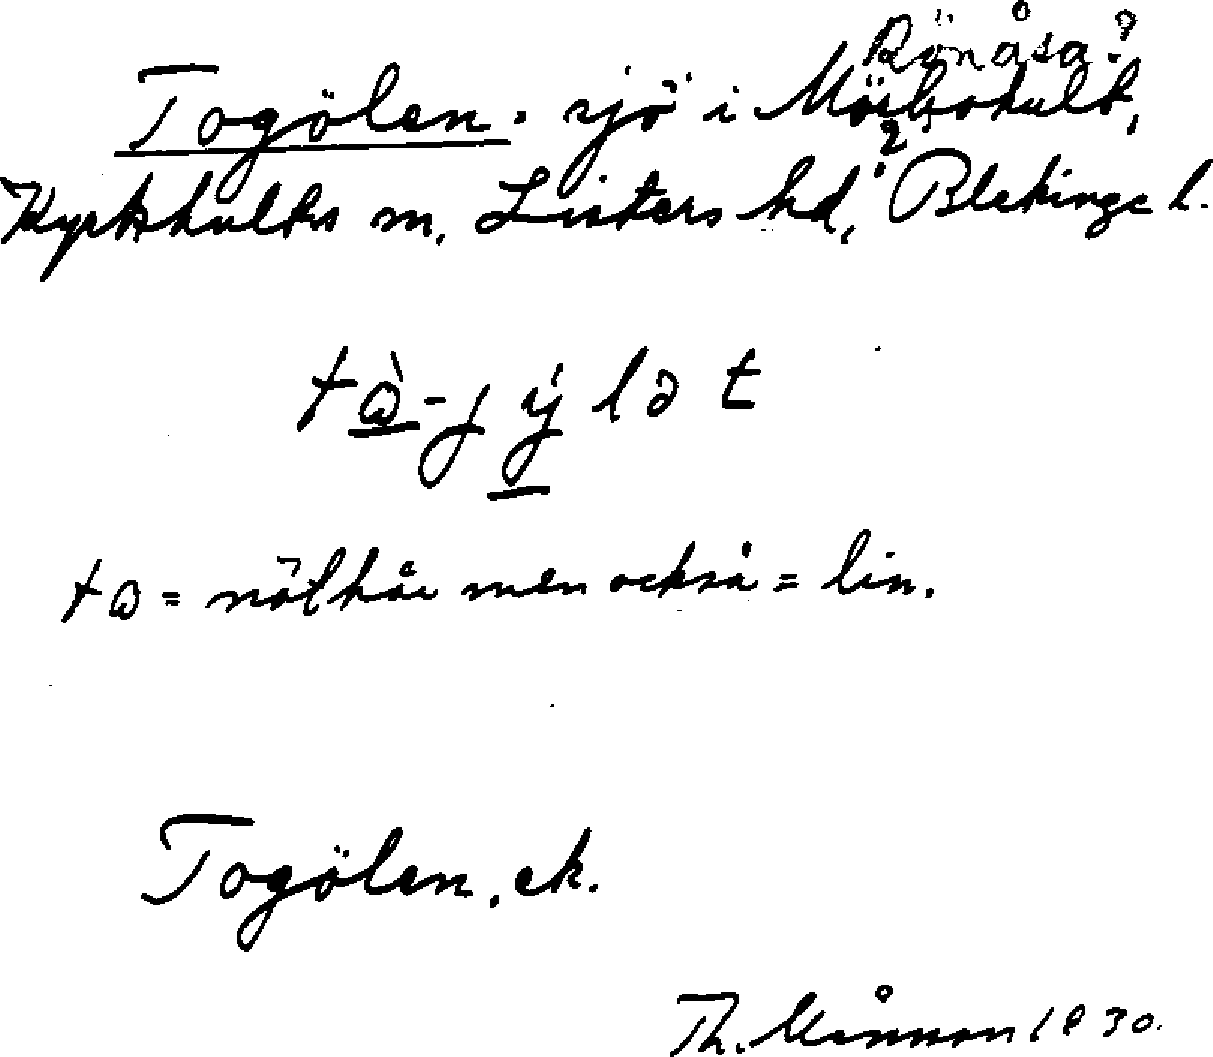 Rönåsa?
Togölen. sjö i Mörkhult,
Kyrkhults sn. Listers hd, Blekinge l.
tɷ̀-jýlət
tɷ = nöthår men också = lin.
Togölen. ek.
Th. Månsson 1930.